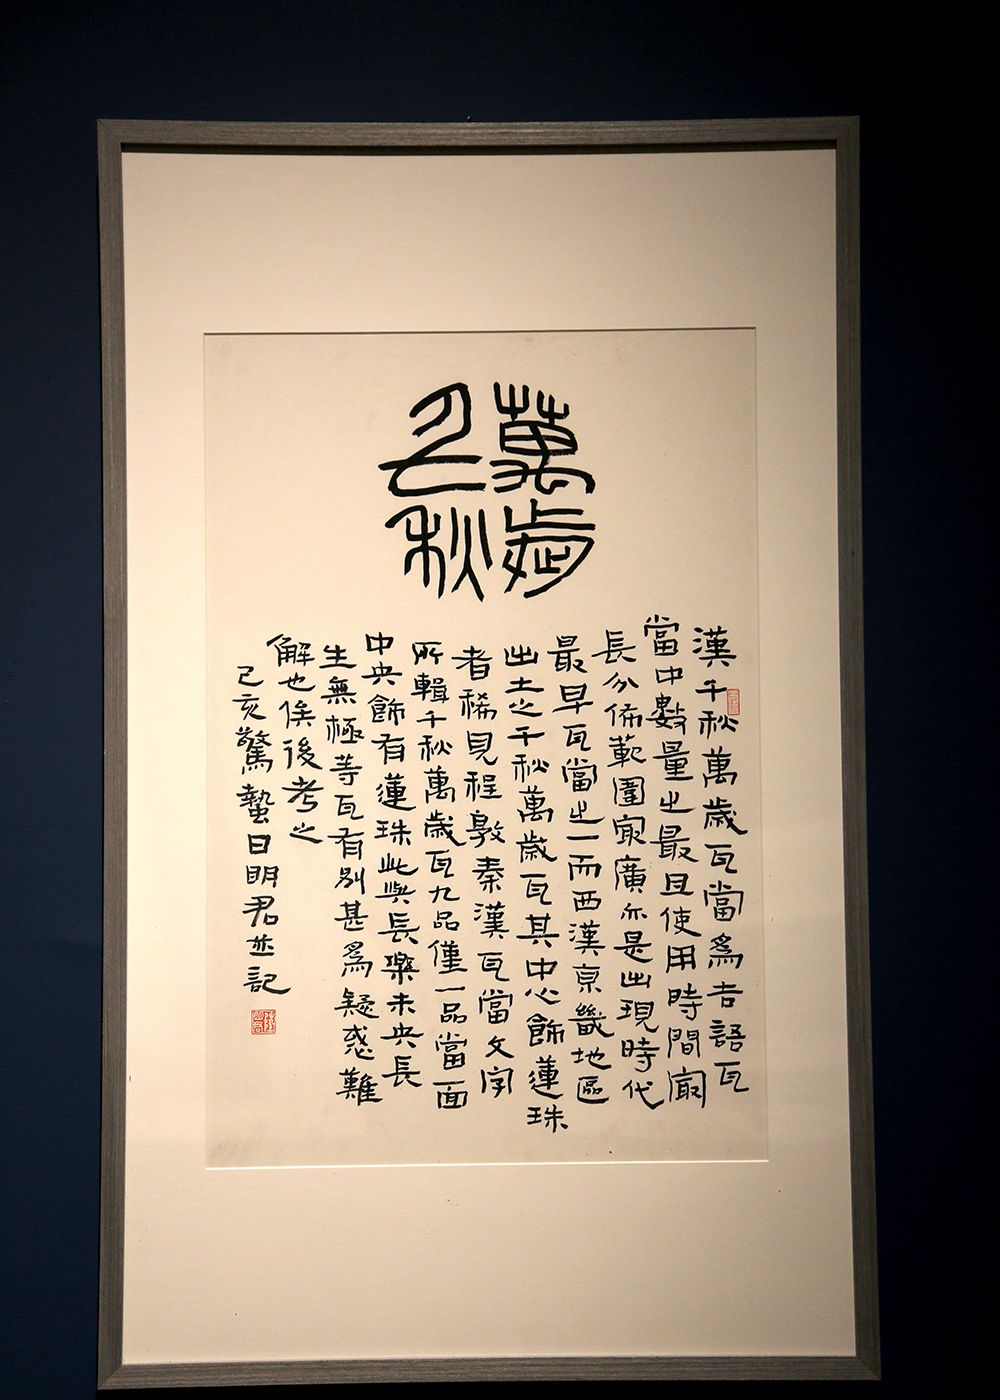 萬歲
千秋
漢千秋萬歲瓦當爲吉語瓦
當中數量之最且使用時間㝡
長分佈範圍㝡廣亦是出現時代
最早瓦當之一而西漢京畿地區
出土之千秋萬歲瓦其中心飾蓮珠
者稀見程敦秦漢瓦當文字
所輯千秋萬歲瓦九品僅一品當面
中央飾有蓮珠此與長樂未央長
生無極等瓦有別甚爲疑惑難
解也俟後考之
己亥驚蟄日明君並記